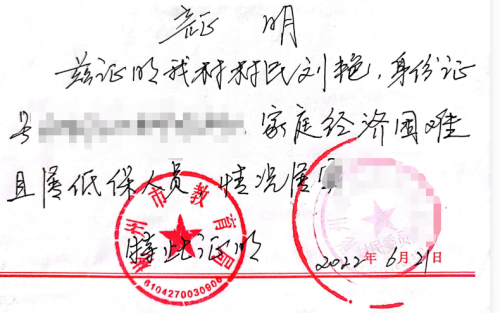 证 明
兹证明我村村民刘艳,身份证
号 家庭经济困难
且属低保人员 情况属实
特此证明
2022年6月21日
彬州市教育局
6104270030906